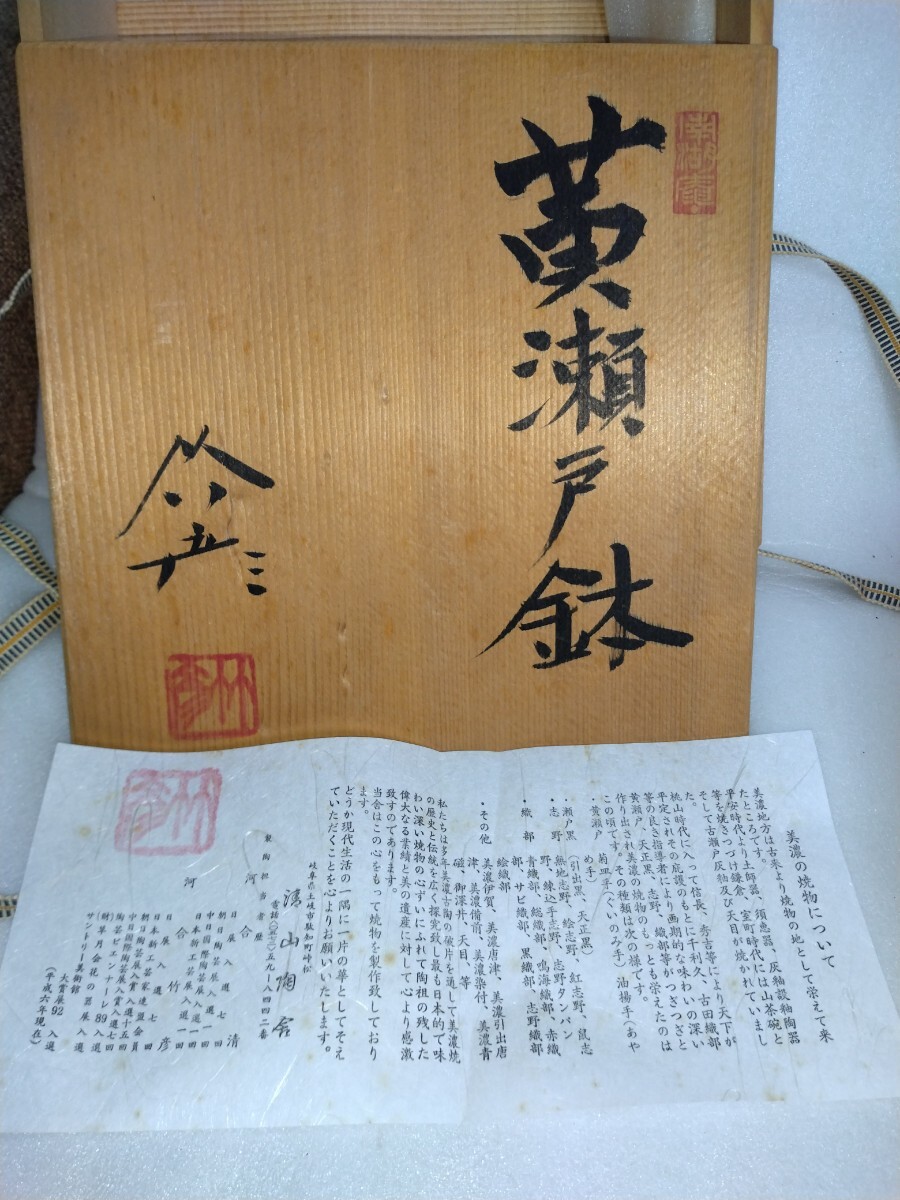 黄瀬戸鉢
美濃の焼物について
美濃地方は古来より焼物の地として栄えて来
たところです。
平安時代より土師器、須恵器、灰釉設釉陶器
等を焼きつづけ鎌倉、室町時代には山茶碗と
そして古瀬戸灰釉及び天目が焼かれていまし
た。
桃山時代に入って信長、秀吉等により天下が
平定されその庇護のもとに千利久、古田織部
等の良き指導者により画期的な味わいの深い
黄瀬戸、天正黒、志野、織部等がつぎつぎと
作り出され美濃の焼物のもっとも栄えたのは
この頃です。その種類は次の様です。
・黄瀬戸 菊皿手(ぐいのみ手)、油揚手(あや
め手)
・瀬戸黒(引出黒、天正黒)
・志野 無地志野、絵志野、紅志野、鼠志
野、練込手志野、志野タンパン
・織部 青織部、総織部、鳴海織部、赤織
部、サビ織部、黒織部、志野織部
絵織部
・その他 美濃伊賀、美濃唐津、美濃引出唐
津、美濃備前、美濃染付、美濃青
磁、御深井、天目、等
私たちは多年美濃古陶の破片を通して美濃焼
の歴史と伝統を広く探究致し最も日本的で味
わい深い焼物の心ずいにふれて陶祖の残した
偉大なる業績と美の遺産に対して心より感激
致すのであります。
当舎はこの心をもって焼物を製作致しており
ます。
どうか現代生活の一隅に一片の華としてそえ
ていただくことを心よりお願いいたします。
岐阜県土岐市駄知町峠松
清山陶舎
電話〇五七二〇五九-八四四二番
製陶担当者歴
河合 清
日展入選七回
朝日陶芸展入選一回
中日国際陶芸展入選一回
日本新工芸展入選一回
河合竹彦
日展入選七回
日本新工芸家連盟会員
朝日陶芸展入賞入選十五回
中日国際陶芸展入賞入選七回
陶芸ビエンナーレ89入選
(財)半月金花の器展入選
サントリー美術館
大賞展92入選
(平成六年現在)